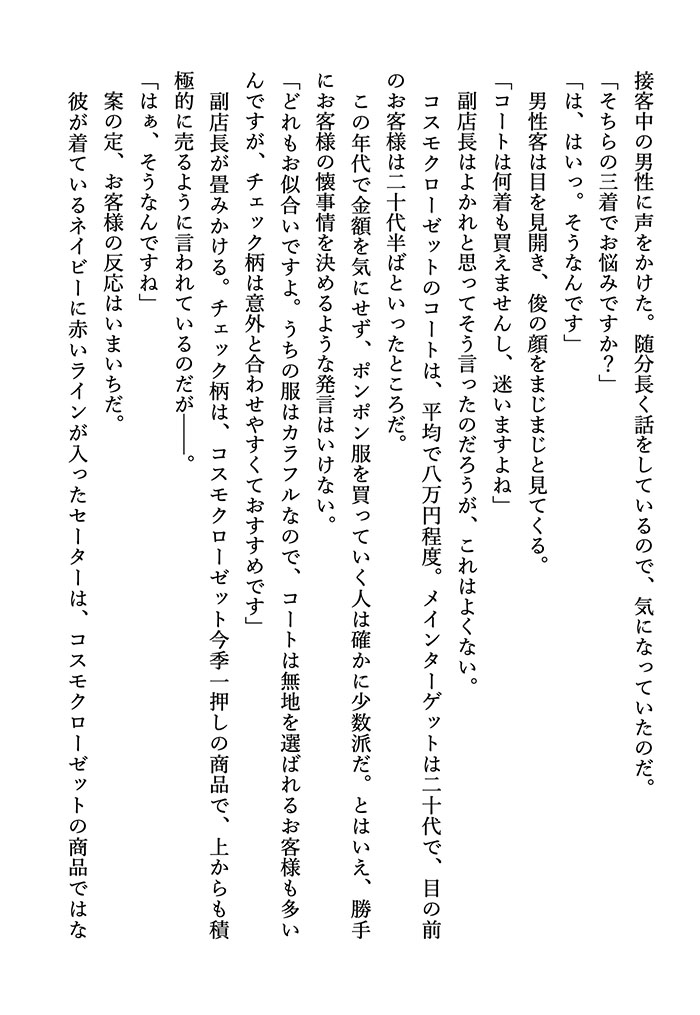 接客中の男性に声をかけた。随分長く話をしているので、気になっていたのだ。
「そちらの三着でお悩みですか？」
「は、はいっ。そうなんです」
男性客は目を見開き、俊の顔をまじまじと見てくる。
「コートは何着も買えませんし、迷いますよね」
副店長はよかれと思ってそう言ったのだろうが、これはよくない。
コスモクローゼットのコートは、平均で八万円程度。メインターゲットは二十代で、目の前
のお客様は二十代半ばといったところだ。
この年代で金額を気にせず、ポンポン服を買っていく人は確かに少数派だ。とはいえ、勝手
にお客様の懐事情を決めるような発言はいけない。
「どれもお似合いですよ。うちの服はカラフルなので、コートは無地を選ばれるお客様も多い
んですが、チェック柄は意外と合わせやすくておすすめです」
副店長が畳みかける。チェック柄は、コスモクローゼット今季一押しの商品で、上からも積
極的に売るように言われているのだが――。
「はぁ、そうなんですね」
案の定、お客様の反応はいまいちだ。
彼が着ているネイビーに赤いラインが入ったセーターは、コスモクローゼットの商品ではな